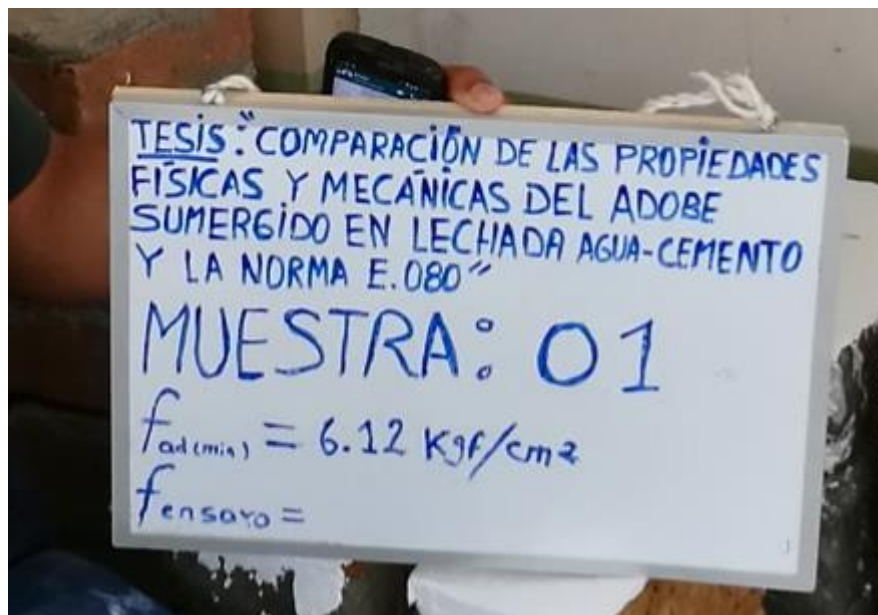 TESIS: "COMPARACIÓN DE LAS PROPIEDADES
FÍSICAS Y MECÁNICAS DEL ADOBE
SUMERGIDO EN LECHADA AGUA-CEMENTO
Y LA NORMA E.080"
MUESTRA: 01
fad(min) = 6.12 Kgf/cm2
fensayo =